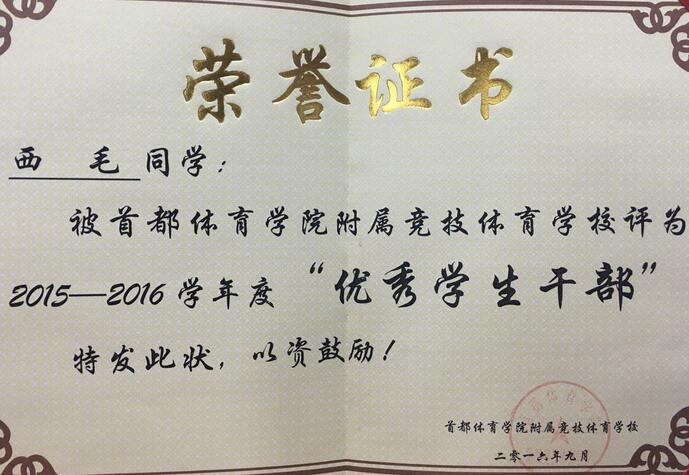 荣誉证书
西 毛 同学：
被首都体育学院附属竞技体育学校评为
2015—2016 学年度 “优秀学生干部”
特发此状，以资鼓励！
首都体育学院附属竞技体育学校
二零一六年九月